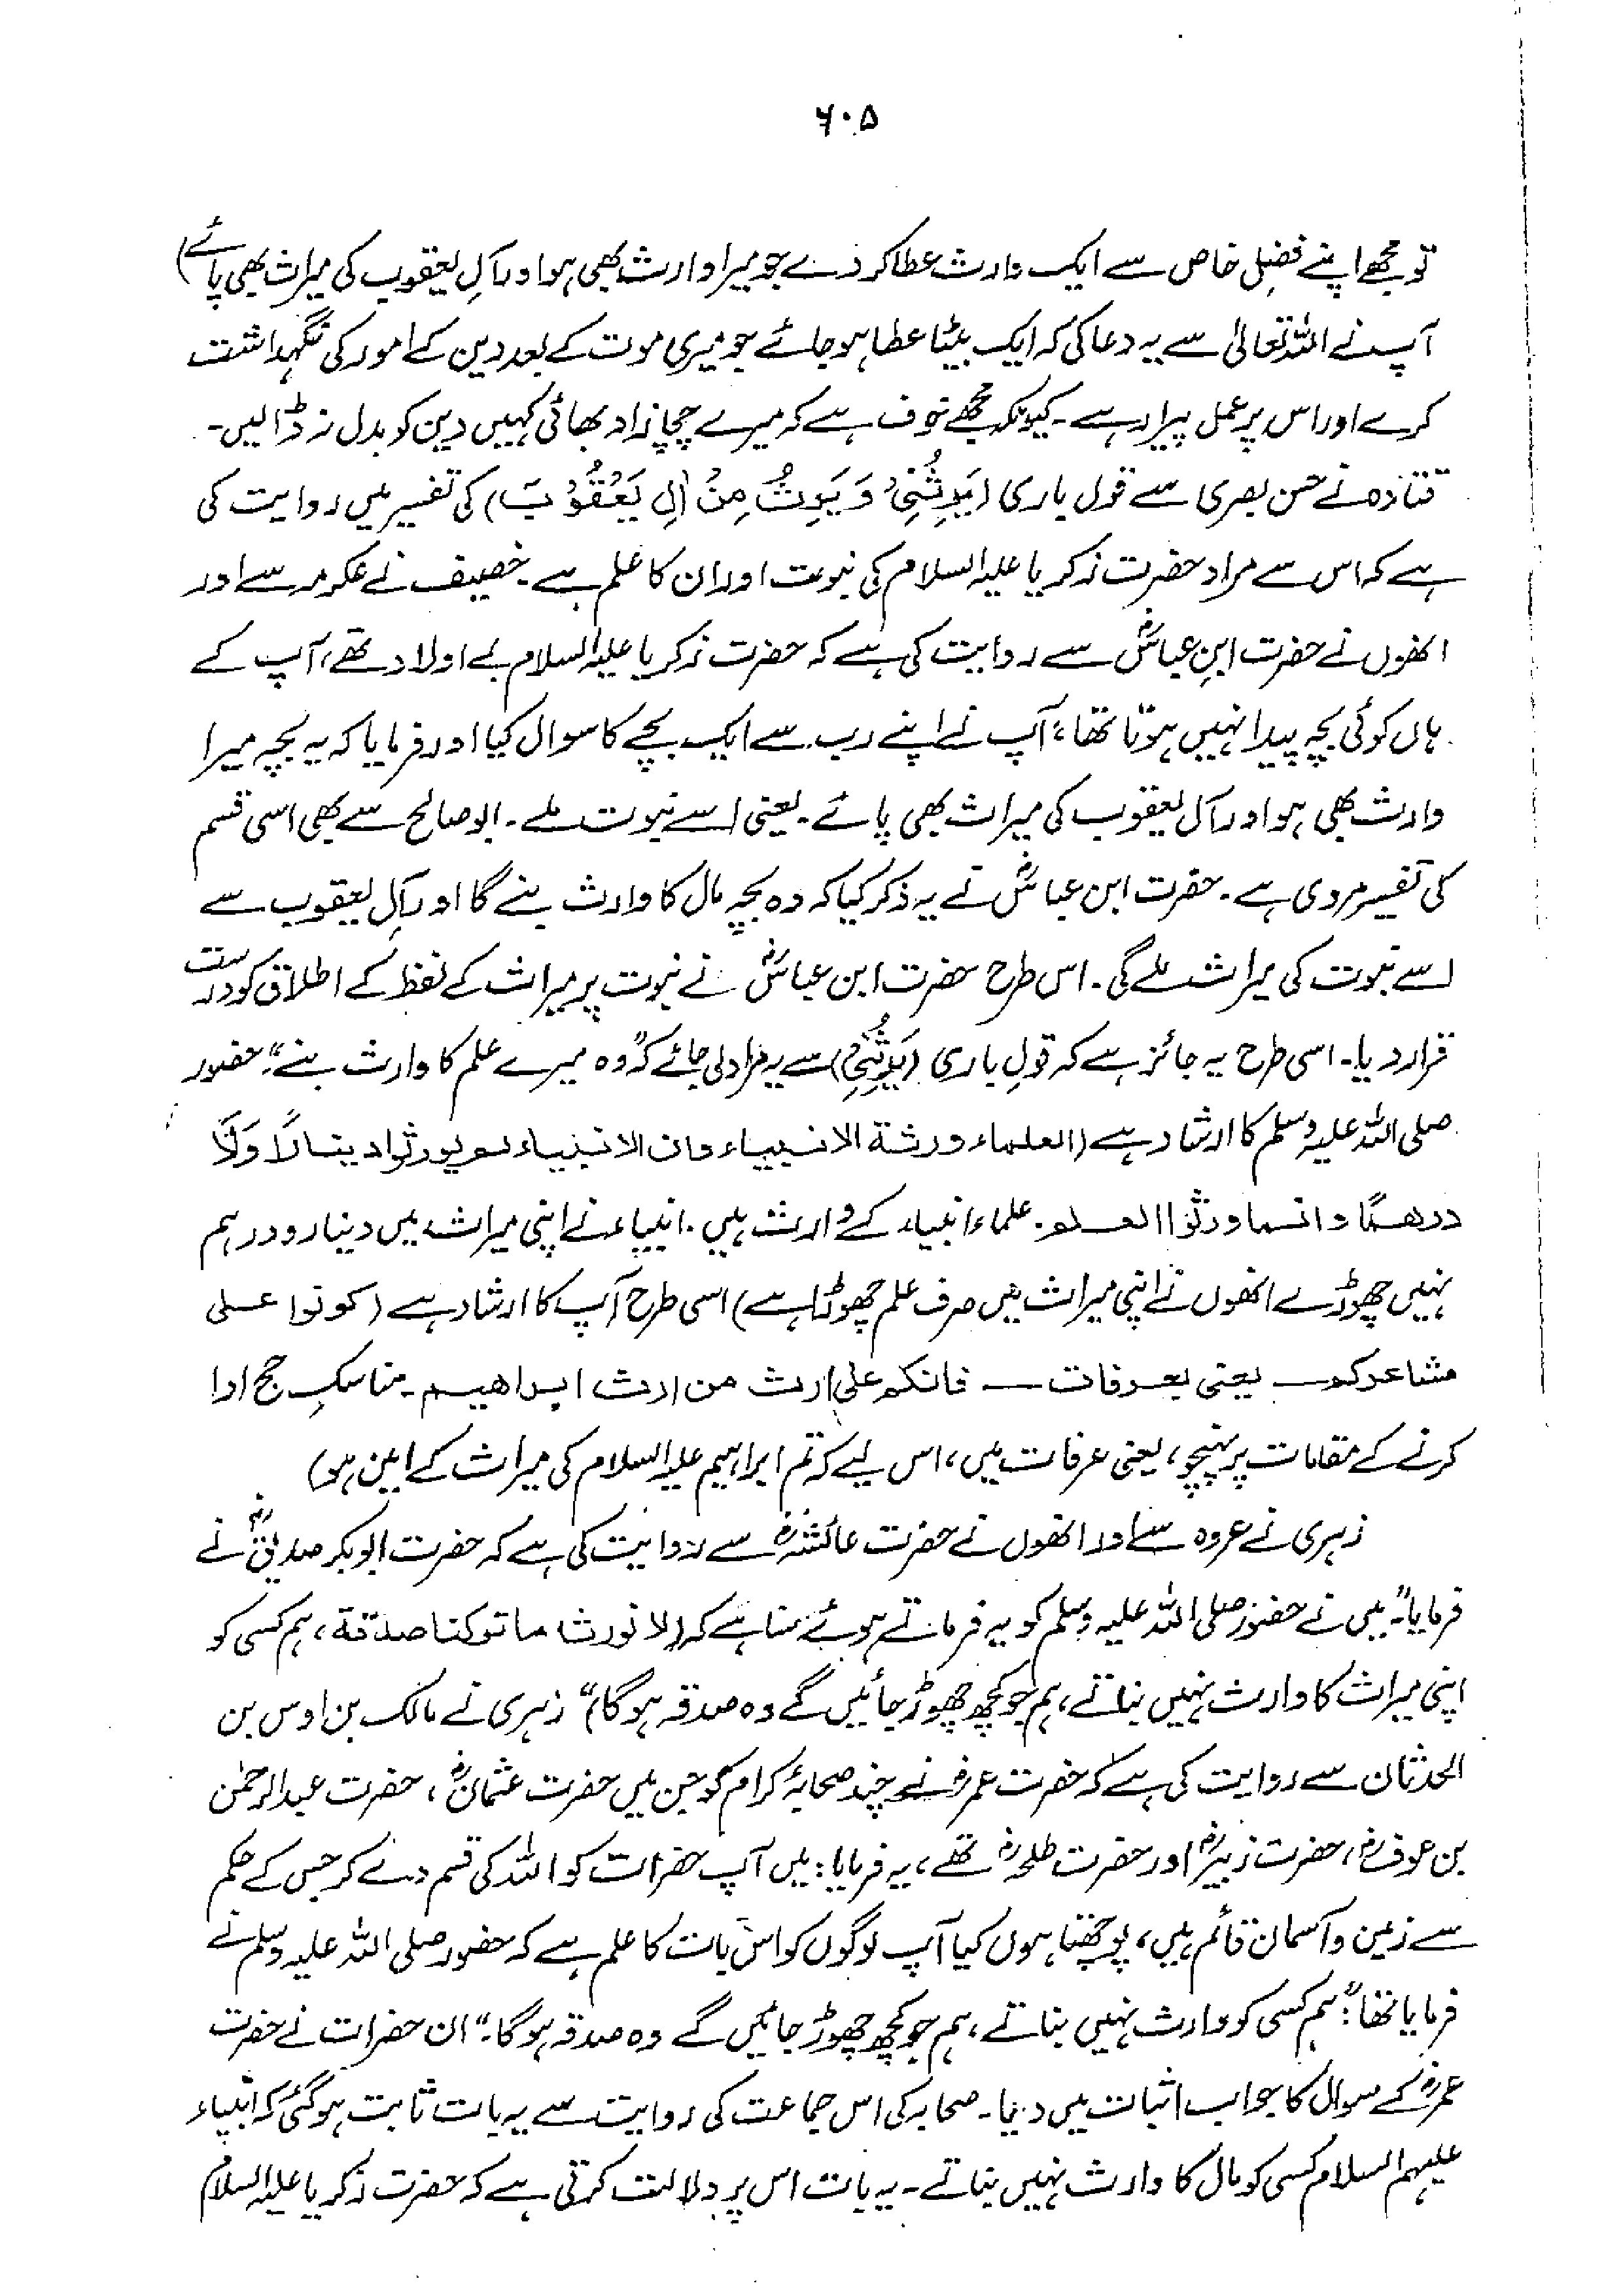 ۶۰۵
تو مجھے اپنے فضلِ خاص سے ایک وارث عطا کر دے جو میرا وارث بھی ہو اور آلِ یعقوب کی میراث بھی پائے)
آپ نے اللہ تعالیٰ سے یہ دعا کی کہ ایک بیٹا عطا ہو جائے جو میری موت کے بعد دین کے امور کی نگہداشت
کرے اور اس پر عمل پیرا رہے۔ کیونکہ مجھے خوف ہے کہ میرے چچا زاد بھائی کہیں دین کو بدل نہ ڈالیں۔
قتادہ نے حسن بصری سے قول باری (یَرِثُنِیْ وَ یَرِثُ مِنْ اٰلِ یَعْقُوْبَ) کی تفسیر میں روایت کی
ہے کہ اس سے مراد حضرت زکریا علیہ السلام کی نبوت اور ان کا علم ہے۔ خصیف نے عکرمہ سے اور
انھوں نے حضرت ابنِ عباسؓ سے روایت کی ہے کہ حضرت زکریا علیہ السلام بے اولاد تھے، آپ کے
ہاں کوئی بچہ پیدا نہیں ہوتا تھا، آپ نے اپنے رب سے ایک بچے کا سوال کیا اور فرمایا کہ یہ بچہ میرا
وارث بھی ہو اور آل یعقوب کی میراث بھی پائے۔ یعنی اسے نبوت ملے۔ ابو صالح سے بھی اسی قسم
کی تفسیر مروی ہے۔ حضرت ابن عباسؓ نے یہ ذکر کیا کہ وہ بچہ مال کا وارث بنے گا اور آلِ یعقوب سے
اسے نبوت کی میراث ملے گی۔ اس طرح حضرت ابن عباسؓ نے نبوت پر میراث کے لفظ کے اطلاق کو درست
قرار دیا۔ اسی طرح یہ جائز ہے کہ قولِ باری (یَرِثُنِیْ) سے یہ مراد لی جائے کہ "وہ میرے علم کا وارث بنے"۔ حضور
صلی اللہ علیہ وسلم کا ارشاد ہے (العلماء ورثة الانبیاء وان الانبیاء لم یورثوا دینارًا وَلَا
درھمًا وانما ورثوا العلم۔ علماء انبیاء کے وارث ہیں۔ انبیاء نے اپنی میراث میں دینار و درہم
نہیں چھوڑے انھوں نے اپنی میراث میں صرف علم چھوڑا ہے) اسی طرح آپ کا ارشاد ہے (کونوا علی
مشاعرکم — یعنی بعرفات — فانکم علی ارث من ارث ابراھیم۔ مناسکِ حج ادا
کرنے کے مقامات پر پہنچو، یعنی عرفات میں، اس لیے کہ تم ابراہیم علیہ السلام کی میراث کے امین ہو)
زہری نے عروہ سے اور انھوں نے حضرت عائشہؓ سے روایت کی ہے کہ حضرت ابوبکر صدیقؓ نے
فرمایا: "میں نے حضور صلی اللہ علیہ وسلم کو یہ فرماتے ہوئے سنا ہے کہ (لا نورث ما ترکنا صدقة، ہم کسی کو
اپنی میراث کا وارث نہیں بناتے، ہم جو کچھ چھوڑ جائیں گے وہ صدقہ ہو گا)" زہری نے مالک بن اوس بن
الحدثان سے روایت کی ہے کہ حضرت عمرؓ نے چند صحابۂ کرام کو جن میں حضرت عثمانؓ، حضرت عبدالرحمٰن
بن عوفؓ، حضرت زبیرؓ اور حضرت طلحہؓ تھے، یہ فرمایا: میں آپ حضرات کو اللہ کی قسم دے کر جس کے حکم
سے زمین و آسمان قائم ہیں، پوچھتا ہوں کیا آپ لوگوں کو اس بات کا علم ہے کہ حضور صلی اللہ علیہ وسلم نے
فرمایا تھا: "ہم کسی کو وارث نہیں بناتے، ہم جو کچھ چھوڑ جائیں گے وہ صدقہ ہو گا۔" ان حضرات نے حضرت
عمرؓ کے سوال کا جواب اثبات میں دیا۔ صحابہ کی اس جماعت کی روایت سے یہ بات ثابت ہو گئی کہ انبیاء
علیہم السلام کسی کو مال کا وارث نہیں بناتے۔ یہ بات اس پر دلالت کرتی ہے کہ حضرت زکریا علیہ السلام